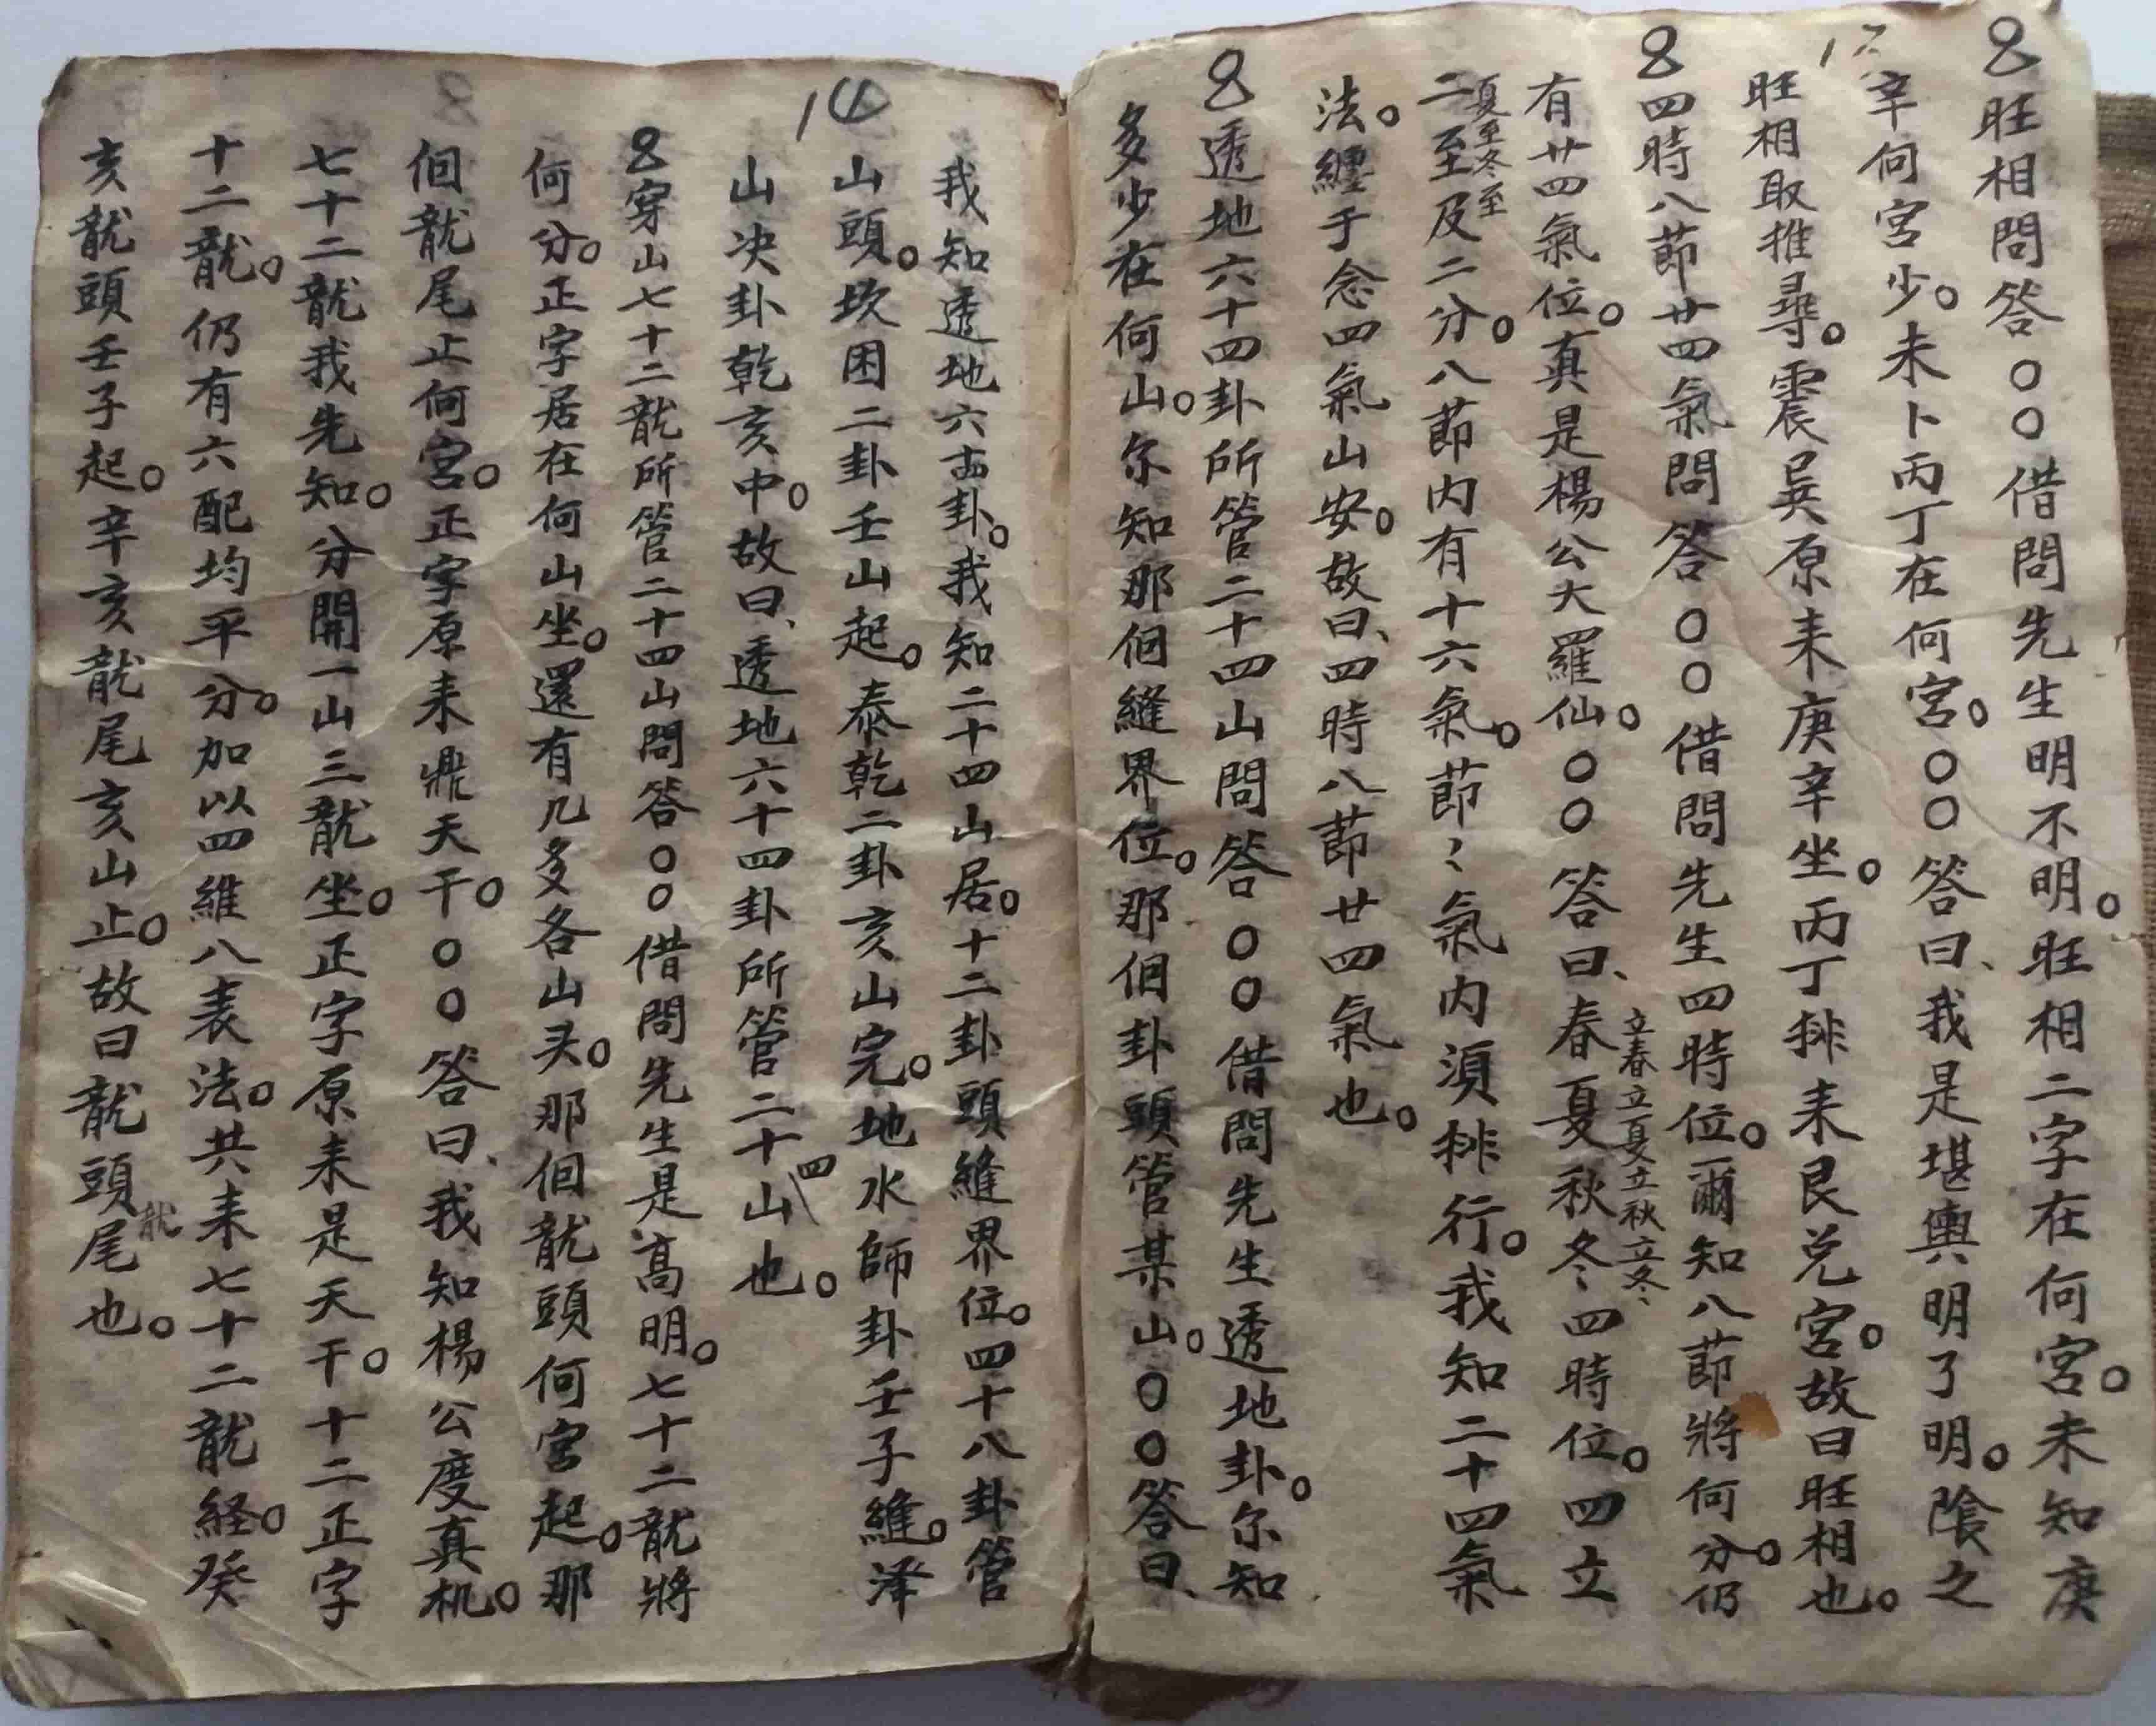 旺相問答○○借問先生明不明。旺相二字在何宮。未知庚
辛何宮少。未卜丙丁在何宮。○○答曰、我是堪輿明了明。陰之
旺相取推尋。震巽原来庚辛坐。丙丁排来艮兌宮。故曰旺相也。
四時八節廿四氣問答○○借問先生四時位。爾知八節將何分。仍
有廿四氣位。真是楊公大羅仙。○○答曰、春夏秋冬四時位。四立
立春立夏立秋立冬
二至及二分。八節内有十六氣。節〻氣内須排行。我知二十四氣
夏至冬至
法。纏于念四氣山安。故曰、四時八節廿四氣也。
透地六十四卦所管二十四山問答○○借問先生透地卦。尓知
多少在何山。尓知那個縫界位。那個卦頭管某山。○○答曰、
13
我知透地六十四卦。我知二十四山居。十二卦頭縫界位。四十八卦管
山頭。坎困二卦壬山起。泰乾二卦亥山完。地水師卦壬子縫。澤
山决卦乾亥中。故曰、透地六十四卦所管二十四山也。
穿山七十二龍所管二十四山問答○○借問先生是高明。七十二龍將
何分。正字居在何山坐。還有几多各山头。那個龍頭何宮起。那
個龍尾止何宮。正字原来鼎天干。○○答曰、我知楊公度真机。
七十二龍我先知。分開一山三龍坐。正字原来是天干。十二正字
十二龍。仍有六配均平分。加以四維八表法。共来七十二龍経。癸
亥龍頭壬子起。辛亥龍尾亥山止。故曰龍頭龍尾也。
14